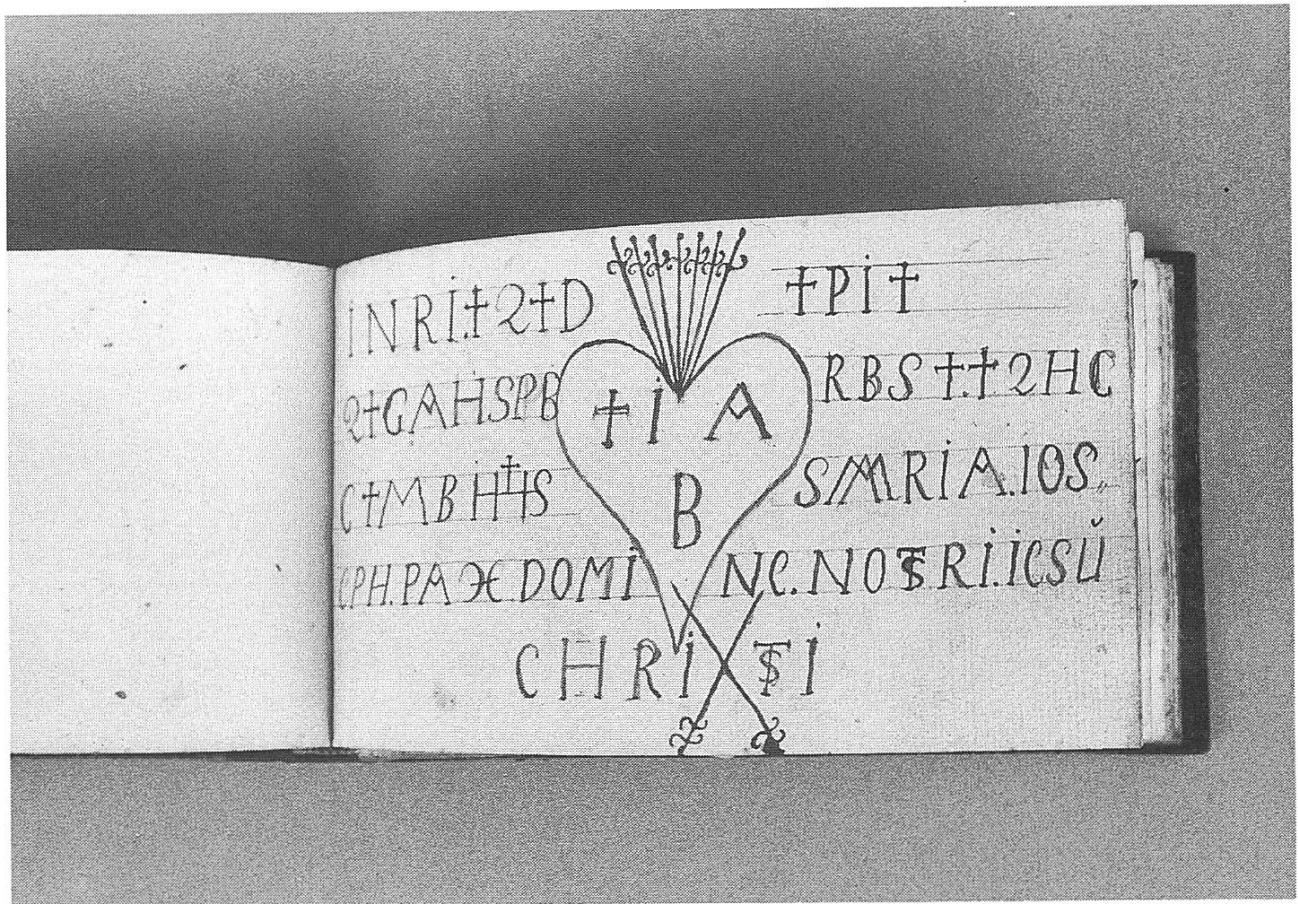 İNRİ.†2†D †Pİ†
2†GAHSPB †İ A RBS†.†2HC
C†MBH†HS B SMRİA.IOS.
CPH.PAXE DOMİ NC.NOSTRİ.İCSŬ
CHRİ STİ